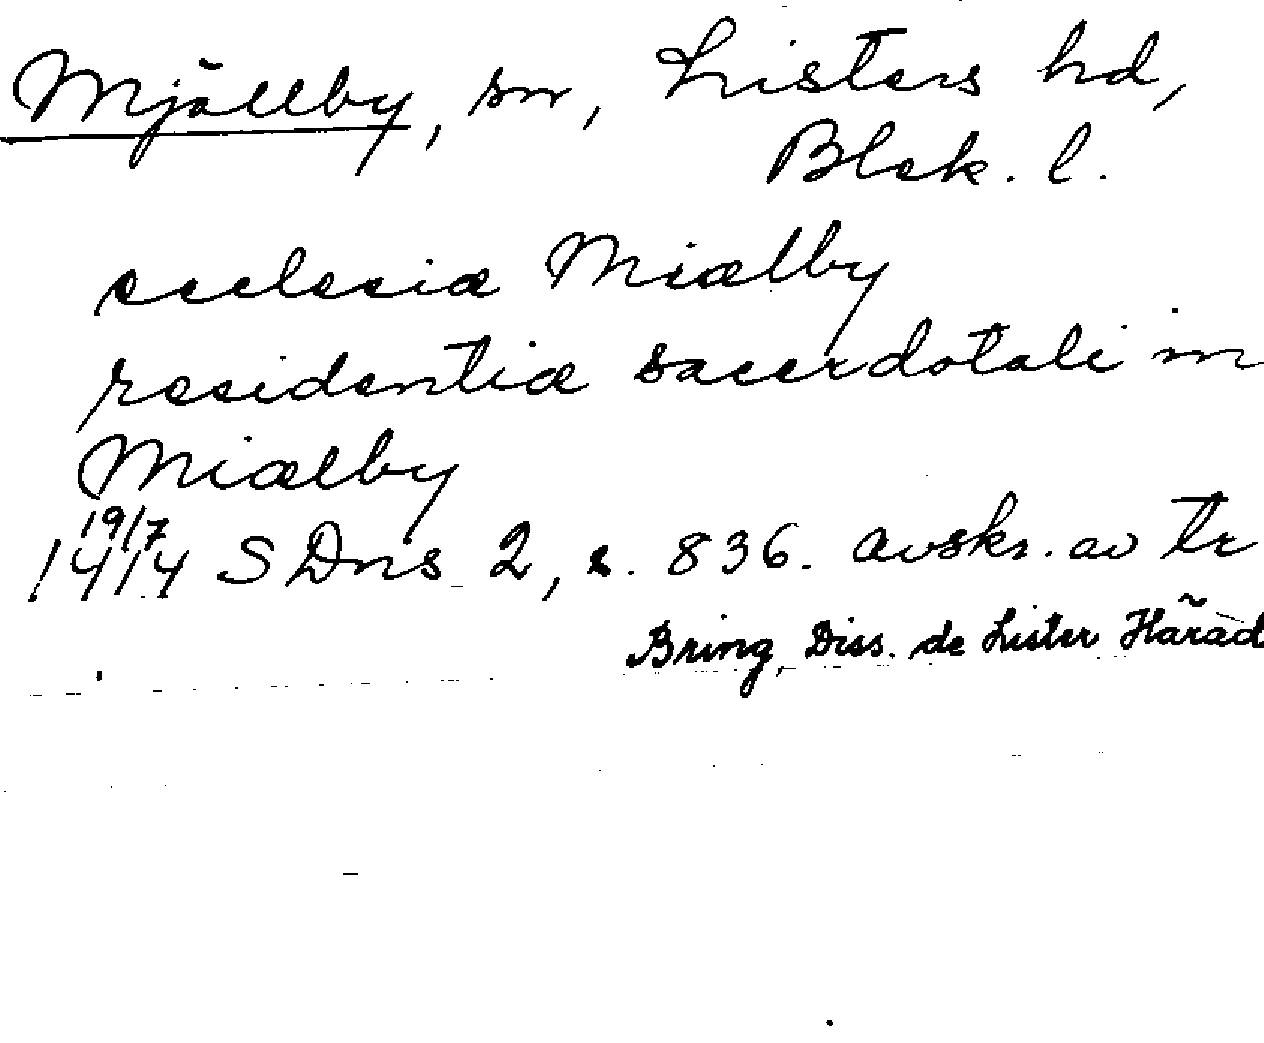 Mjällby, sn, Listers hd,
Blek. l.
ecclesiæ Miælby
residentiæ sacerdotali in
Miælby
19/7
1414 SDns 2, s. 836. avskr. av tr
Bring, Diss. de Lister Härad